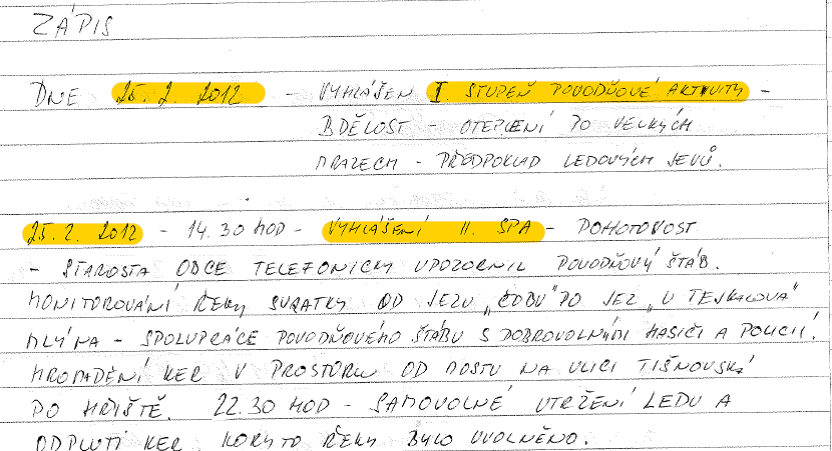 ZÁPIS
DNE 25. 2. 2012 - VYHLÁŠEN I STUPEŇ POVODŇOVÉ AKTIVITY -
BDĚLOST - OTEPLENÍ PO VELKÝCH
MRAZECH - PŘEDPOKLAD LEDOVÝCH JEVŮ.
25. 2. 2012 - 14.30 HOD - VYHLÁŠENÍ II. SPA - POHOTOVOST
- STAROSTA OBCE TELEFONICKY UPOZORNIL POVODŇOVÝ ŠTÁB.
MONITOROVÁNÍ ŘEKY SVRATKY OD JEZU „ČOBU" PO JEZ „U TEJKALOVA"
MLÝNA - SPOLUPRÁCE POVODŇOVÉHO ŠTÁBU S DOBROVOLNÝMI HASIČI A POLICIÍ.
HROMADĚNÍ KER V PROSTORU OD MOSTU NA ULICI TIŠNOVSKÁ
PO HŘIŠTĚ. 22.30 HOD - SAMOVOLNÉ UTRŽENÍ LEDU A
ODPLUTÍ KER. KORYTO ŘEKY BYLO UVOLNĚNO.